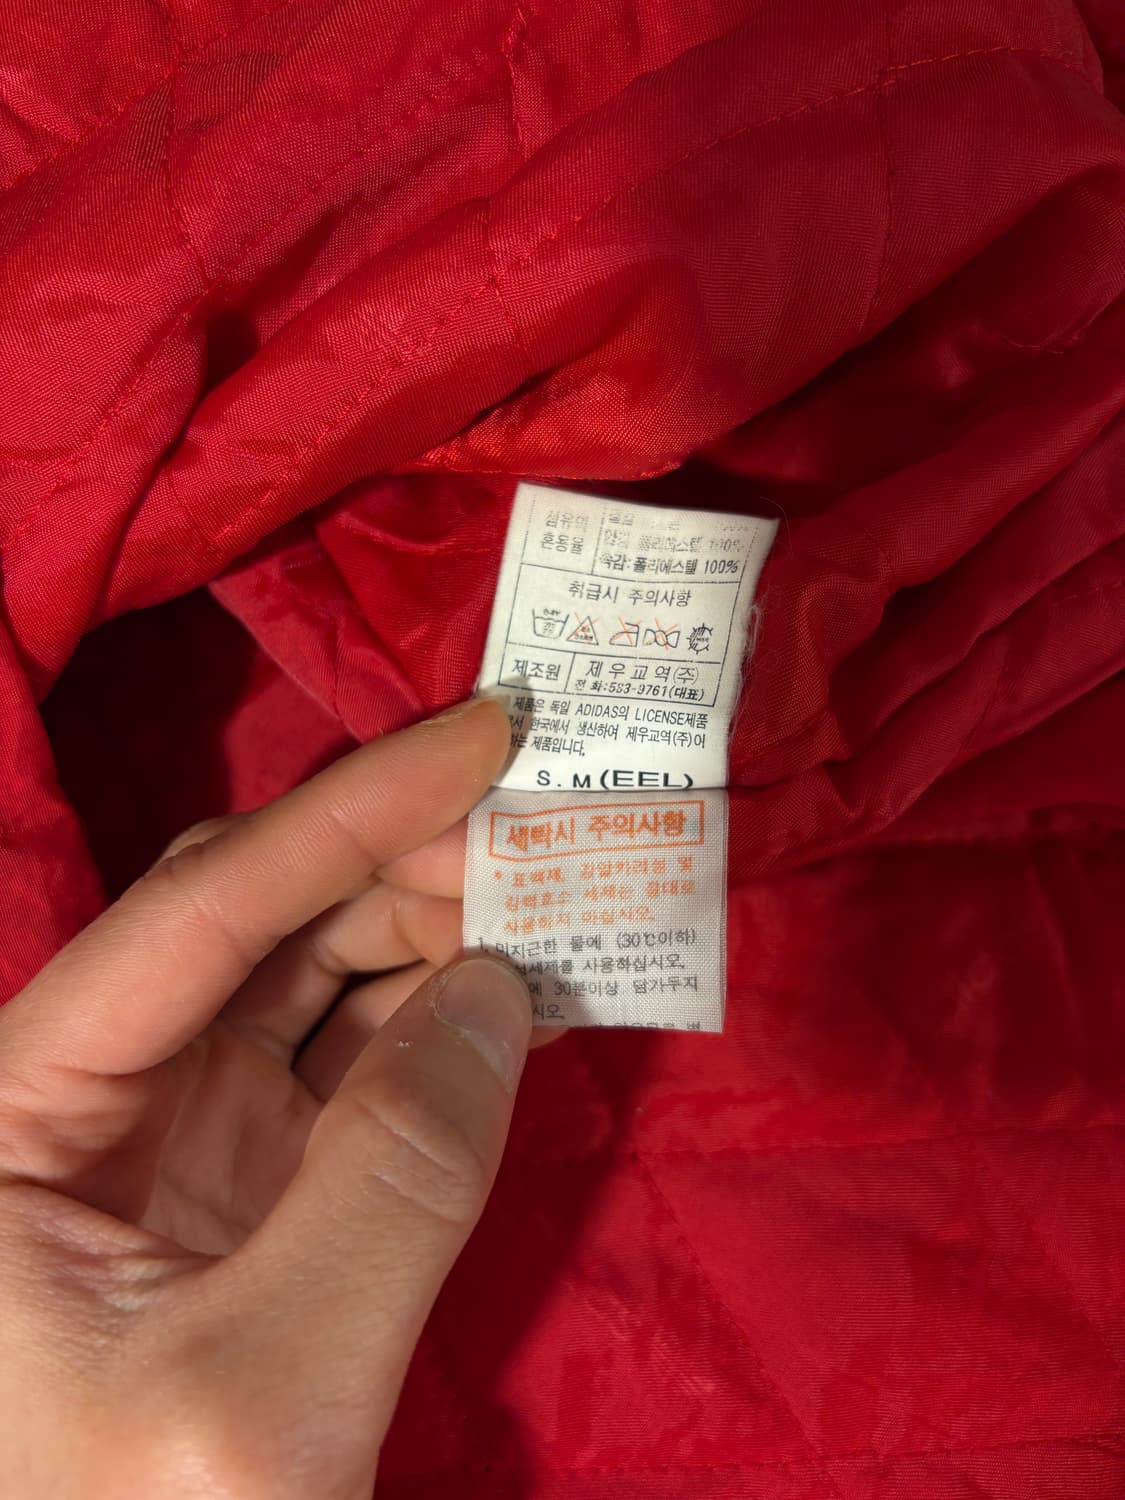 섬유의
혼용율
안감: 폴리에스텔 100%
속감: 폴리에스텔 100%
취급시 주의사항
제조원
제우교역(주)
전화:583-9761(대표)
제품은 독일 ADIDAS의 LICENSE제품
서 한국에서 생산하여 제우교역(주)이
하는 제품입니다.
S. M (EEL)
세탁시 주의사항
* 표백제, 강알카리분 및
강력효소 세제는 절대로
사용하지 마십시오.
1. 미지근한 물에 (30℃이하)
세제를 사용하십시오.
에 30분이상 담가두지
시오.